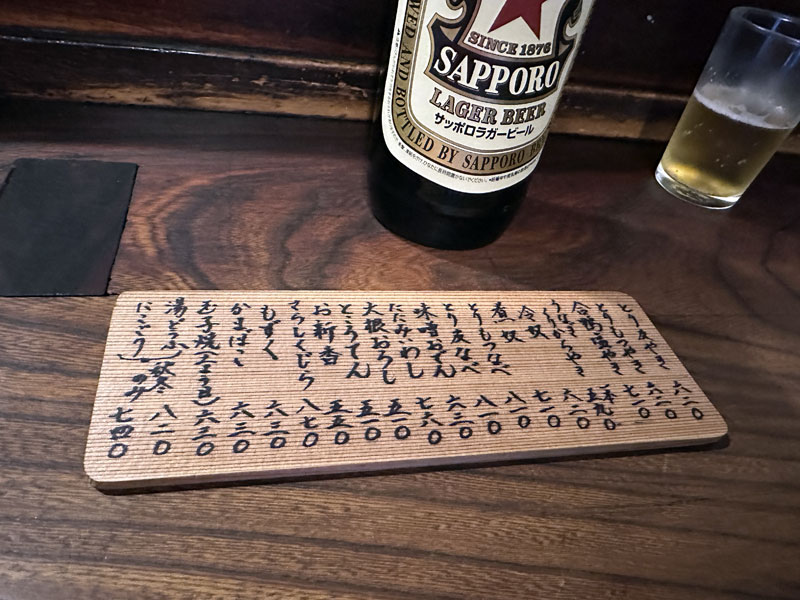 SINCE 1876
SAPPORO
LAGER BEER
サッポロラガービール
BOTTLED BY SAPPORO
とり皮やき 六二〇
とりもつやき 六二〇
合鴨塩やき 七一〇
うなぎくりからやき 一本五九〇
冷奴 六二〇
煮奴 七一〇
とりもつなべ 八一〇
とり皮なべ 八一〇
味噌おでん 六三〇
たたみいわし 七六〇
大根おろし 五一〇
ところてん 五一〇
お新香 五五〇
さらしくじら 八七〇
もずく 六三〇
かまぼこ 六三〇
玉子焼 六三〇
湯どうふ(秋冬) 八二〇
にこごり(冬のみ) 七四〇